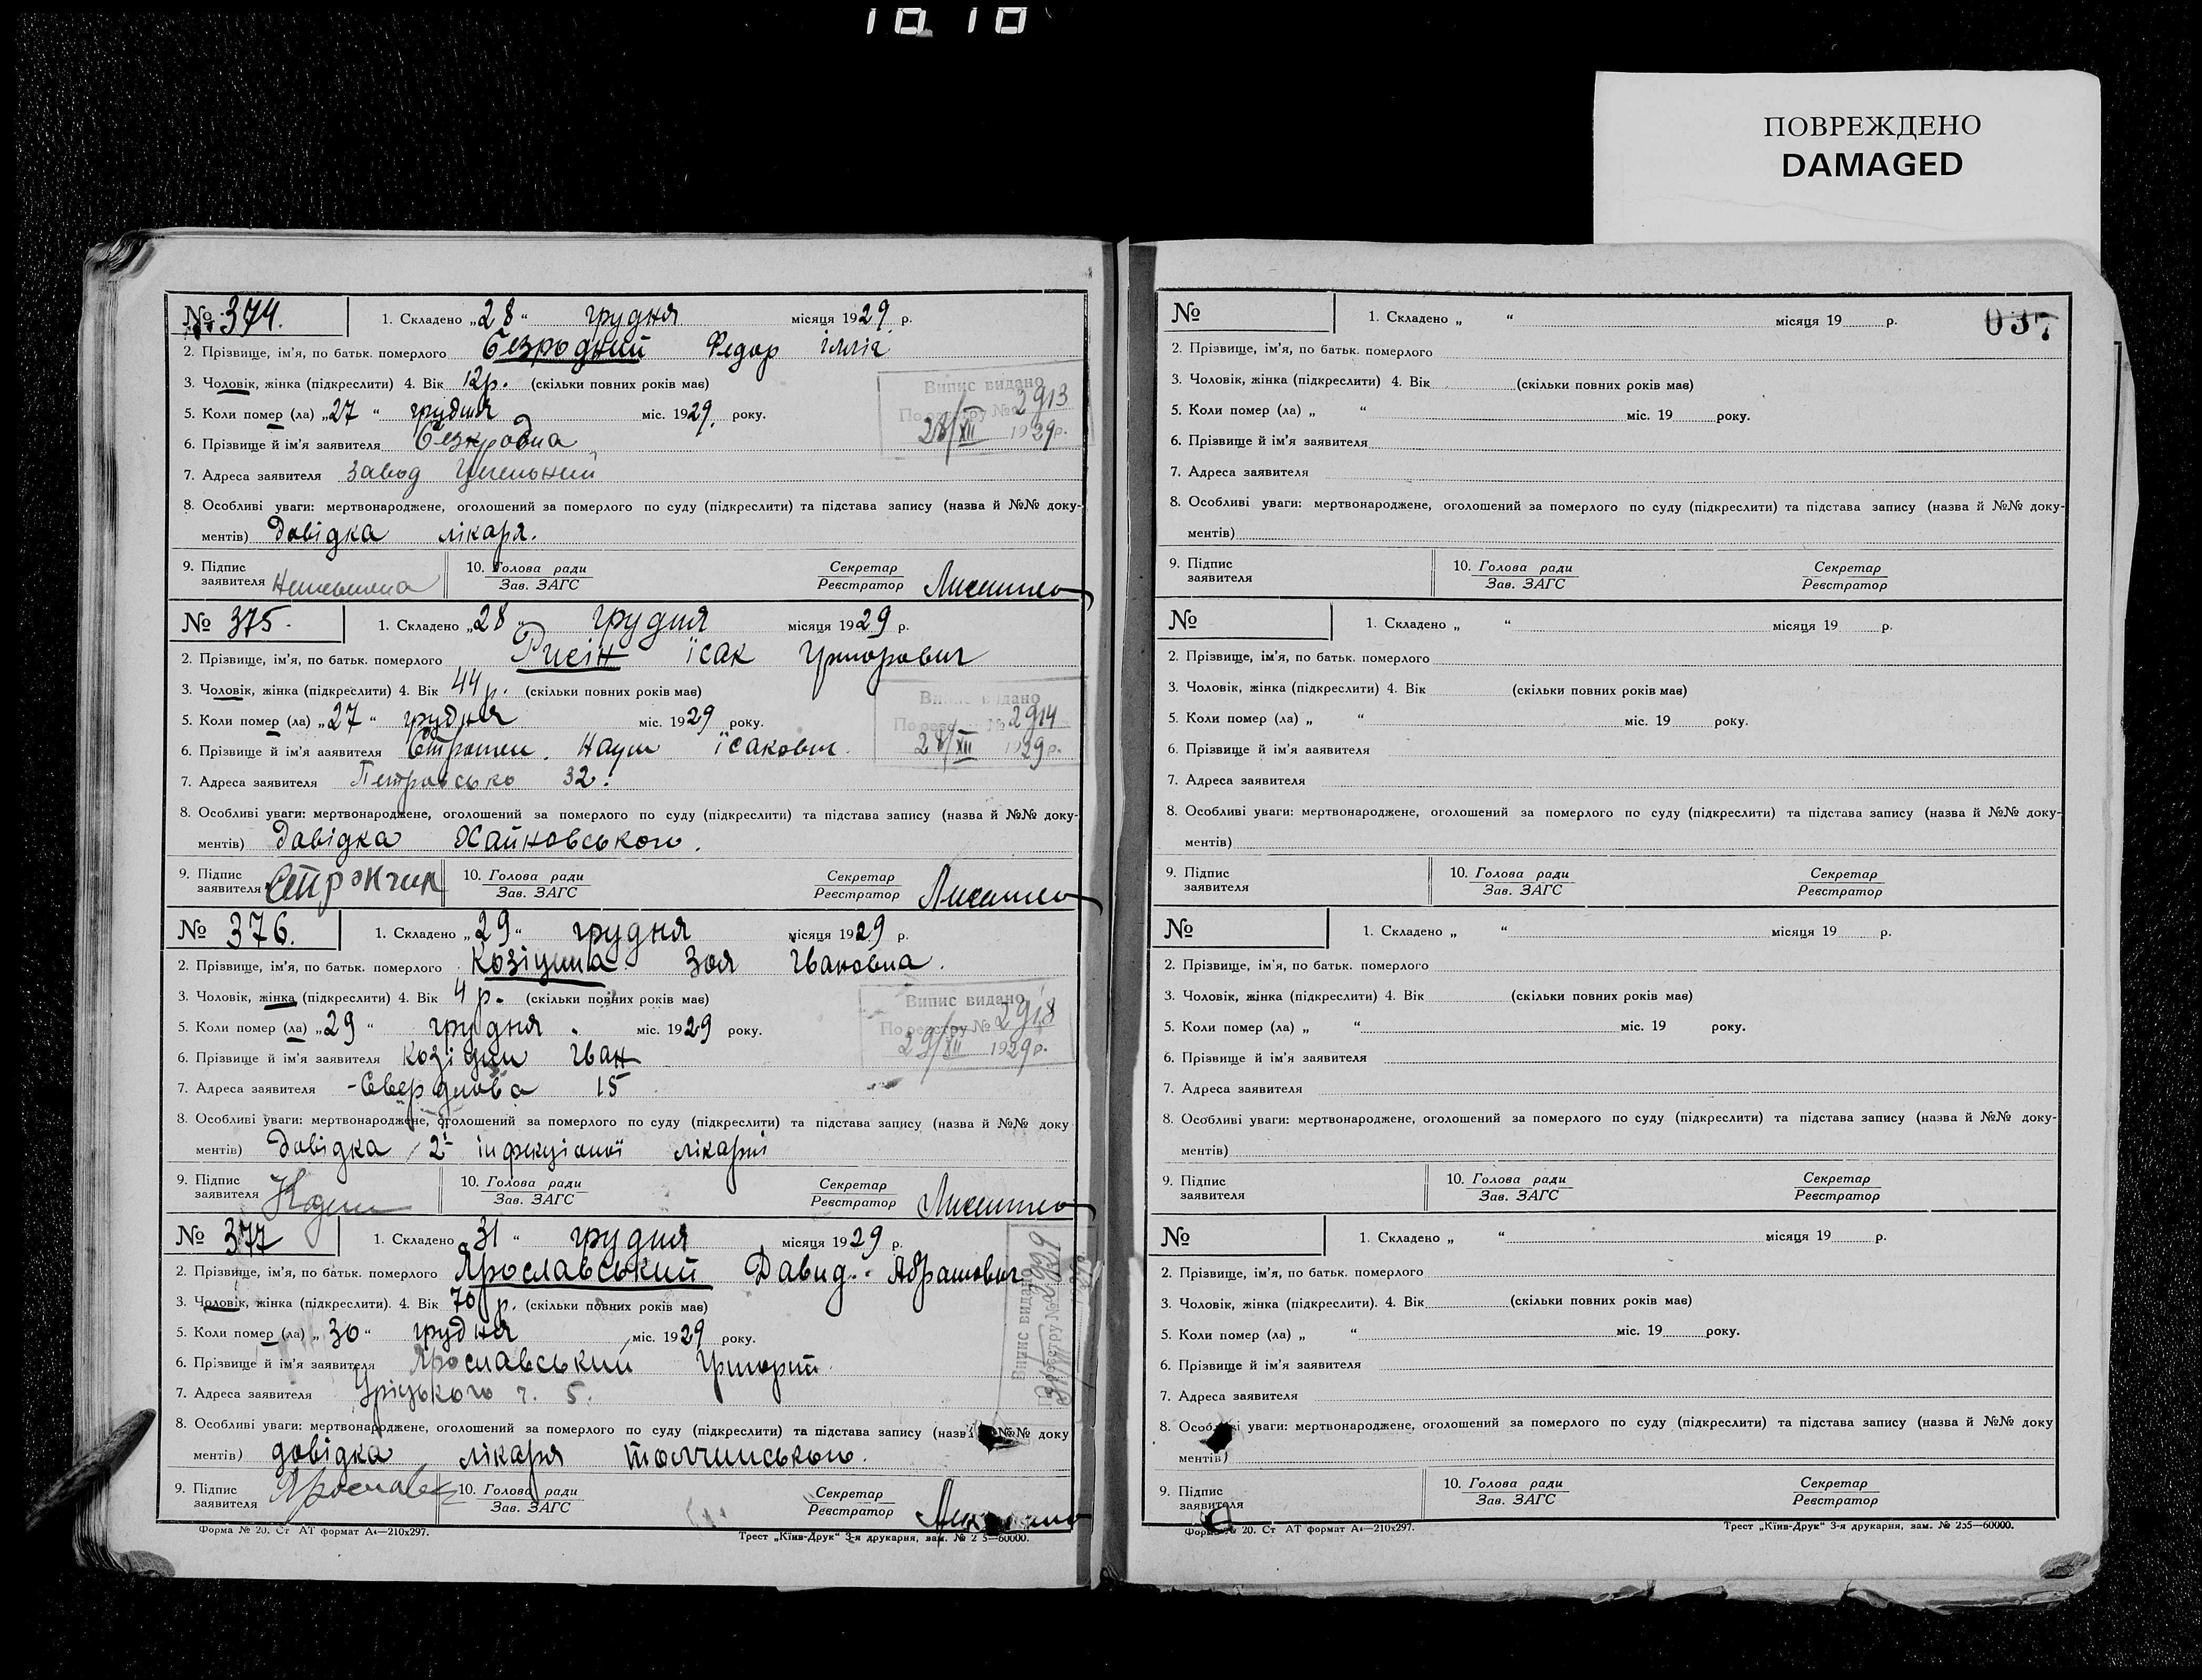 1618
ПОВРЕЖДЕНО
DAMAGED
№ 374. 1. Складено „28“ грудня місяця 1929 р.
2. Прізвище, ім'я, по батьк. померлого Безродний Федор Ілліч
3. Чоловік, жінка (підкреслити) 4. Вік 12 р. (скільки повних років має)
5. Коли помер (ла) „27“ грудня міс. 1929 року.
Випис видано
По реєстру № 2913
28/XII 1929 р.
6. Прізвище й ім'я заявителя Безродна
7. Адреса заявителя завод Цегельний
8. Особливі уваги: мертвонароджене, оголошений за померлого по суду (підкреслити) та підстава запису (назва й №№ доку-
ментів) Довідка лікаря.
9. Підпис заявителя 10. Голова ради Зав. ЗАГС Секретар Реєстратор
№ 375. 1. Складено „28“ грудня місяця 1929 р.
2. Прізвище, ім'я, по батьк. померлого Рисін Їсак Григорович
3. Чоловік, жінка (підкреслити) 4. Вік 44 р. (скільки повних років має)
5. Коли помер (ла) „27“ грудня міс. 1929 року.
Випис видано
По реєстру № 2914
28/XII 1929 р.
6. Прізвище й ім'я заявителя Наум Їсакович
7. Адреса заявителя Петровсько 32.
8. Особливі уваги: мертвонароджене, оголошений за померлого по суду (підкреслити) та підстава запису (назва й №№ доку-
ментів) Довідка Хайновського.
9. Підпис заявителя 10. Голова ради Зав. ЗАГС Секретар Реєстратор
№ 376. 1. Складено „29“ грудня місяця 1929 р.
2. Прізвище, ім'я, по батьк. померлого Козіцина Зоя Івановна.
3. Чоловік, жінка (підкреслити) 4. Вік 4 р. (скільки повних років має)
5. Коли помер (ла) „29“ грудня міс. 1929 року.
Випис видано
По реєстру № 2918
29/XII 1929 р.
6. Прізвище й ім'я заявителя Козіцин Іван
7. Адреса заявителя Свердлова 15
8. Особливі уваги: мертвонароджене, оголошений за померлого по суду (підкреслити) та підстава запису (назва й №№ доку
ментів) Довідка 2ї інфекціоної лікарні
9. Підпис заявителя 10. Голова ради Зав. ЗАГС Секретар Реєстратор
№ 377 1. Складено „31“ грудня місяця 1929 р.
2. Прізвище, ім'я, по батьк. померлого Ярославський Давид Абрамович
3. Чоловік, жінка (підкреслити). 4. Вік 70 р. (скільки повних років має)
5. Коли помер (ла) „30“ грудня міс. 1929 року.
Випис видано
По реєстру № 2929
6. Прізвище й ім'я заявителя Ярославський Григорій
7. Адреса заявителя Уріцького ч. 5.
8. Особливі уваги: мертвонароджене, оголошений за померлого по суду (підкреслити) та підстава запису (назва №№ доку
ментів) довідка лікаря Толчинського.
9. Підпис заявителя 10. Голова ради Зав. ЗАГС Секретар Реєстратор
Форма № 20. Ст АТ формат А4—210х297. Трест „Київ-Друк“ 3-я друкарня, зам. № 2 5—60000.
037
№ 1. Складено „ “ місяця 19 р.
2. Прізвище, ім'я, по батьк. померлого
3. Чоловік, жінка (підкреслити) 4. Вік (скільки повних років має)
5. Коли помер (ла) „ “ міс. 19 року.
6. Прізвище й ім'я заявителя
7. Адреса заявителя
8. Особливі уваги: мертвонароджене, оголошений за померлого по суду (підкреслити) та підстава запису (назва й №№ доку-
ментів)
9. Підпис заявителя 10. Голова ради Зав. ЗАГС Секретар Реєстратор
№ 1. Складено „ “ місяця 19 р.
2. Прізвище, ім'я, по батьк. померлого
3. Чоловік, жінка (підкреслити) 4. Вік (скільки повних років має)
5. Коли помер (ла) „ “ міс. 19 року.
6. Прізвище й ім'я заявителя
7. Адреса заявителя
8. Особливі уваги: мертвонароджене, оголошений за померлого по суду (підкреслити) та підстава запису (назва й №№ доку-
ментів)
9. Підпис заявителя 10. Голова ради Зав. ЗАГС Секретар Реєстратор
№ 1. Складено „ “ місяця 19 р.
2. Прізвище, ім'я, по батьк. померлого
3. Чоловік, жінка (підкреслити) 4. Вік (скільки повних років має)
5. Коли помер (ла) „ “ міс. 19 року.
6. Прізвище й ім'я заявителя
7. Адреса заявителя
8. Особливі уваги: мертвонароджене, оголошений за померлого по суду (підкреслити) та підстава запису (назва й №№ доку-
ментів)
9. Підпис заявителя 10. Голова ради Зав. ЗАГС Секретар Реєстратор
№ 1. Складено „ “ місяця 19 р.
2. Прізвище, ім'я, по батьк. померлого
3. Чоловік, жінка (підкреслити). 4. Вік (скільки повних років має)
5. Коли помер (ла) „ “ міс. 19 року.
6. Прізвище й ім'я заявителя
7. Адреса заявителя
8. Особливі уваги: мертвонароджене, оголошений за померлого по суду (підкреслити) та підстава запису (назва й №№ доку
ментів)
9. Підпис заявителя 10. Голова ради Зав. ЗАГС Секретар Реєстратор
Форма № 20. Ст АТ формат А4—210х297. Трест „Київ-Друк“ 3-я друкарня, зам. № 255—60000.